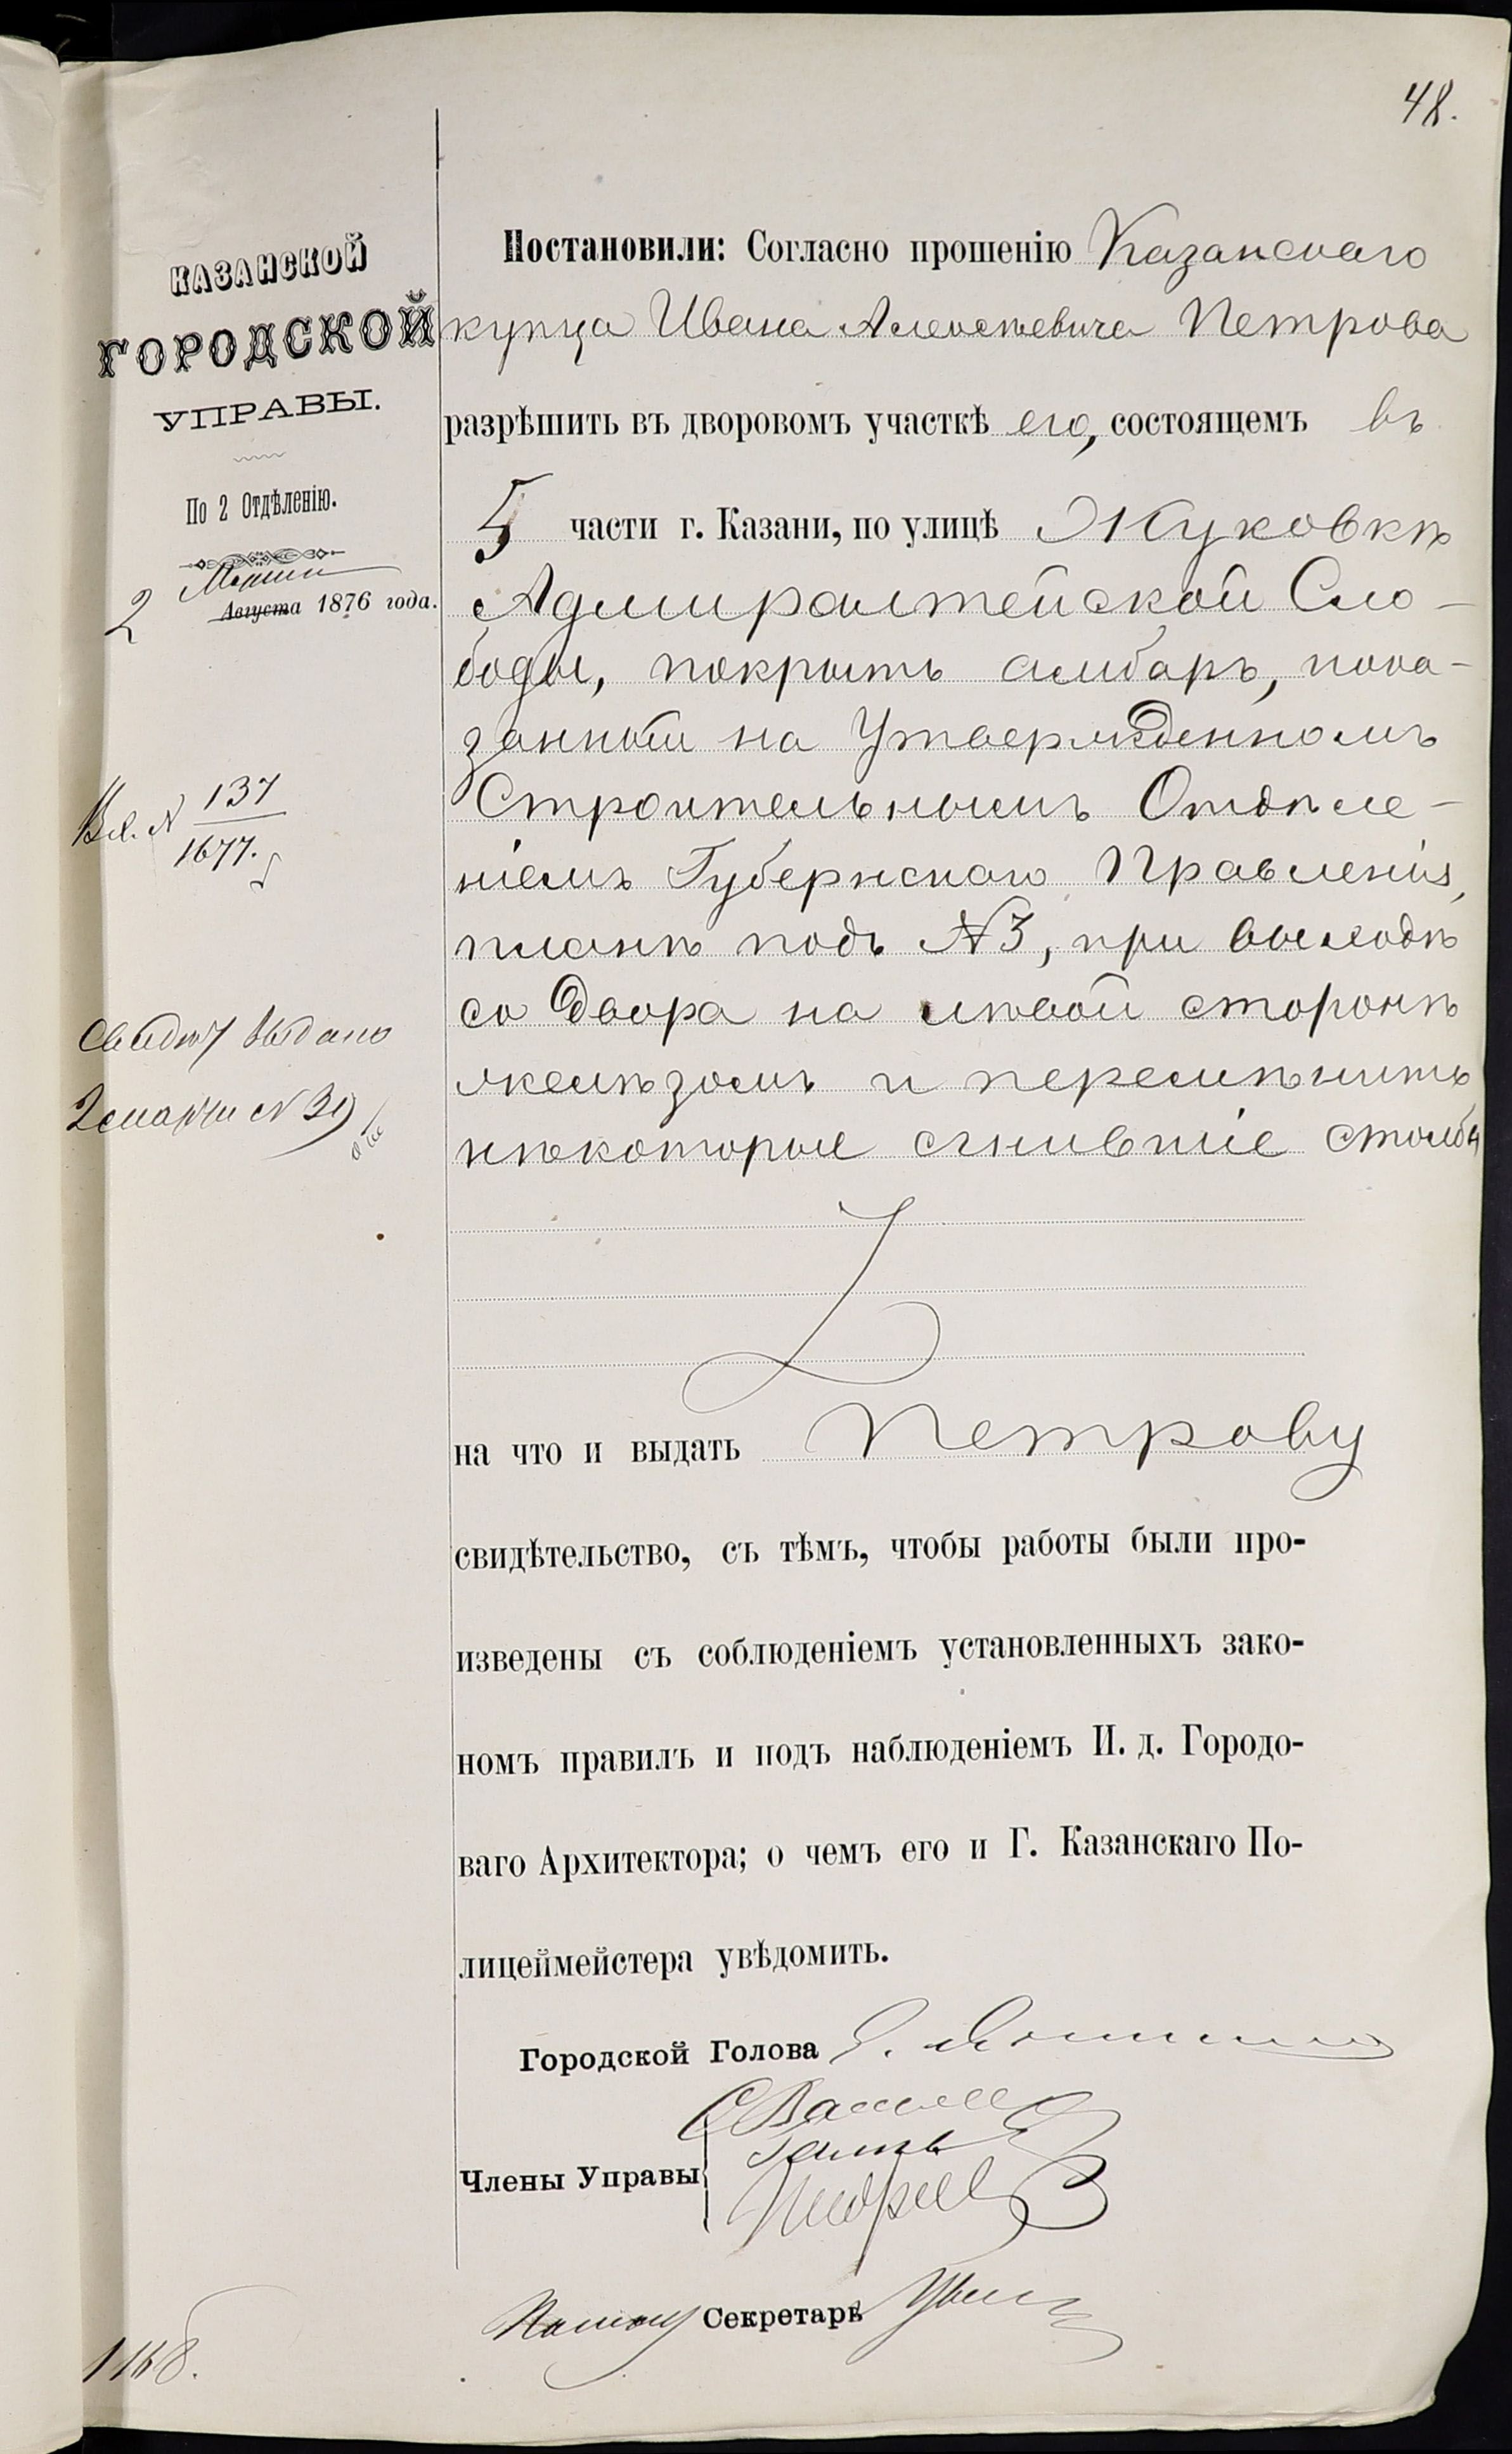 48.
КАЗАНСКОЙ
ГОРОДСКОЙ
УПРАВЫ.
По 2 Отдѣленію.
2 Марта
Августа 1876 года.
Вх. № 137
1677.
Свидѣт выдано
2 марта № 39
1168.
Постановили: Согласно прошенію Казанскаго
купца Ивана Алексѣевича Петрова
разрѣшить въ дворовомъ участкѣ его, состоящемъ въ
5 части г. Казани, по улицѣ Жуковкѣ
Адмиралтейской Сло-
боды, покрыть амбаръ, пока-
занный на Утвержденномъ
Строительнымъ Отдѣле-
ніемъ Губернскаго Правленія,
планѣ подъ №3, при выходѣ
со Двора на лѣвой сторонѣ
желѣзомъ и перемѣнить
нѣкоторые сгнившіе столбы
на что и выдать Петрову
свидѣтельство, съ тѣмъ, чтобы работы были про-
изведены съ соблюденіемъ установленныхъ зако-
номъ правилъ и подъ наблюденіемъ И. д. Городо-
ваго Архитектора; о чемъ его и Г. Казанскаго По-
лицеймейстера увѣдомить.
Городской Голова
Члены Управы
Секретарь